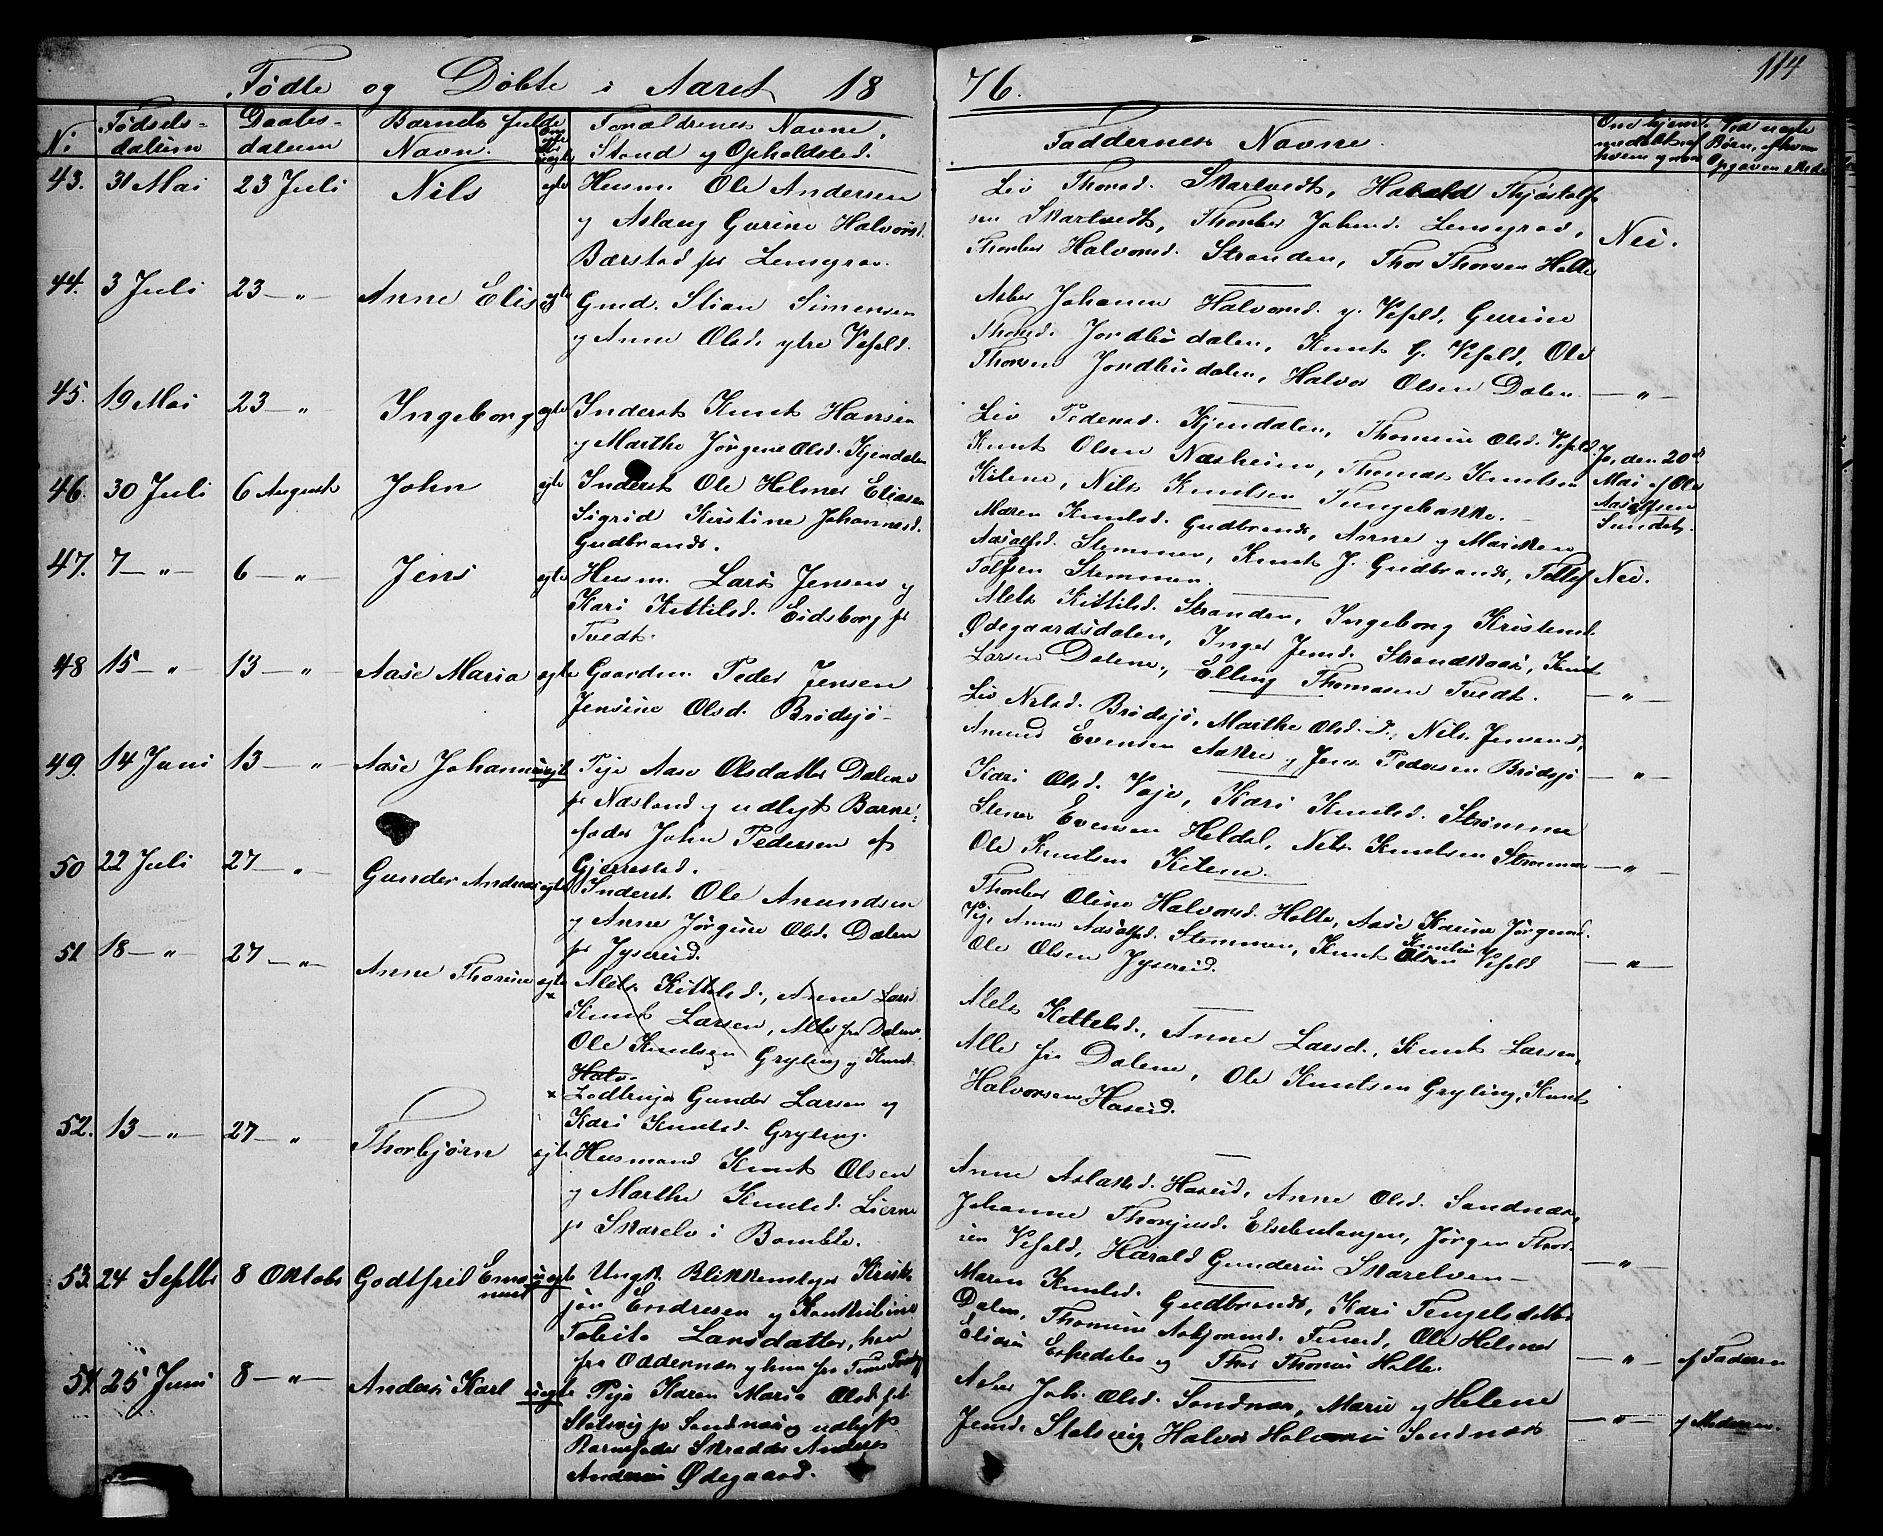 Fødte og Døbte i Aaret 1876.
114
N:
Fødsels-
datum
Daabs-
datum
Barnets fulde
Navn.
Forældrenes Navne,
Stand og Opholdsted.
Faddernes Navne.
43. 31 Mai 23 Juli Nils ægte
Husm. Ole Andersen
og Aslaug Gurine Halvorsd.
Barstad fr Lensgrav.
Liv Thorsd. Skartvedt, Harald Thjøstolf
sen Skartvedt, Thorbor Johnsd. Lensgrav,
Thorbor Halvorsd. Stranden, Thor Thorsen Holte
Nei.
44. 3 Juli 23 — " Anne Elis ægte
Gmd. Stian Simensen
og Anne Olsd. ytre Vefald.
Asbor Johanne Halvorsd. y. Vefald, Gurine
Thorsd. Jordbudalen, Knut G. Vefald, Ole
Thorsen Jordbudalen, Halvor Olsen Dalen.
— " —
45. 19 Mai 23 — " Ingeborg ægte
Inderst Knut Hansen
og Marthe Jørgine Olsd. Kjendalen
Liv Pedersd. Kjendalen, Thomine Olsd. Vefald
Knut Olsen Næsheim, Thomas Knutsen
Kilene, Nils Knutsen Tangebakke.
Ja, den 20de
Mai af Ole
Aasolfsen
Sundet.
46. 30 Juli 6 August John ægte
Inderst Ole Helmer Eliasen
Sigrid Kirstine Johannesd.
Gudbrands.
Maren Knutsd. Gudbrands, Anne og Mariken
Aasolfsd. Stemmen, Knut J. Gudbrands, Tollef
Tolfsen Stemmen.
Nei.
47. 7 — " — 6 — " — Jens ægte
Husm. Lars Jensen og
Kari Kittilsd. Eidsborg fr
Tvedt.
Alet Kittilsd. Stranden, Ingeborg Kristensd.
Ødegaardsdalen, Inger Jensd. Strandkaas, Knut
Larsen Dalene, Elling Thomasen Tvedt.
— " —
48 15 — " 13 — " Aase Maria ægte
Gaardm. Peder Jensen
Jensine Olsd. Brødsjø
Liv Nilsd. Brødsjø, Marthe Olsd. D., Nils Jensen,
Amund Evensen Aakre og Jens Pedersen Brødsjø
— " —
49. 14 Juni 13 — " — Aase Johanne uægte
Pige Aase Olsdatter Dalene
fr Næsland og udlagt Barne-
fader John Pedersen af
Gjerrestad.
Kari Olsd. Vaje, Kari Knutsd. Strømme
Stener Evensen Heldal, Nils Knutsen Strømme
Ole Knutsen Kilene.
— " —
50 22 Juli 27 — " — Gunder Andreas ægte
Inderst Ole Amundsen
og Anne Jørgine Olsd. Dalen
fr Jysereid.
Thorbor Oline Halvorsd. Holte, Aase Karine Jørgensd.
Vej, Anne Aasolfsd. Stemmen, Knut Knutsen Vefald
Ole Olsen Jysereid.
— " —
51 18 — " — 27 — " — Anne Thorine ægte
×
Alet Kittelsd., Anne Larsd.
Knut Larsen, Alle fra Dalene.
Ole Knutsen Gryting og Knut
Halv.
× Lodtenja Gunder Larsen og
Kari Knutsd. Gryting.
Alet Kittelsd., Anne Larsd., Knut Larsen,
Alle fra Dalene, Ole Knutsen Gryting, Knut
Halvorsen Haseid.
52. 13 — " — 27 — " Thorbjørn ægte
Husmand Knut Olsen
og Marthe Knutsd. Lierne
fr Skarelv i Bamble.
Anne Aslaksd. Haseid, Anne Olsd. Sandnæs,
Johanne Thorjusd. Elsebutangen, Jørgen Thor-
sen Vefald, Harald Gundersen Skarelven —
— " —
53. 24 Septbr 8 Oktobr Godtfrid Ema
nuel uægte
Ungk. Blikkenslager Krist
jan Endresen og Konkubine
Tobite Larsdatter, han
fra Oddernæs og hun fra
Maren Knutsd. Gudbrands, Kari Tengelsdatter
Dalen, Thomine Asbjørnsd. , Ole Helmer
Eliasen og Thor Thorsen Holte.
— " — af Faderen
54. 25 Juni 8 — " — Anders Karl uægte
Pige Karen Maria Olsd. fr
Stølsvig fr Sandnæs og udlagt
Barnefader Skrædder Anders
Andersen Ødegaard.
Asbor Joh. Olsd. Sandnæs, Marie og Helene
Jensd. Stølsvig, Halvor Halvorsen Sandnæs
— " — af Moderen.